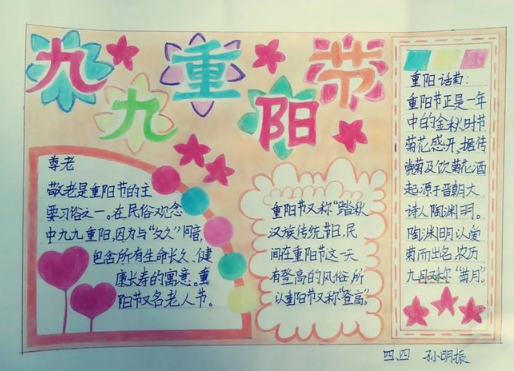 九九重阳节
尊老
敬老是重阳节的主
要习俗之一。在民俗观念
中九九重阳,因为与“久久”同音,
包含所有生命长久、健
康长寿的寓意。重
阳节又名老人节。
重阳节又称“踏秋
汉族传统节日。民
间在重阳节这一天
有登高的风俗所
以重阳节又称“登高”。
重阳话菊:
重阳节正是一年
中的金秋时节
菊花盛开,据传
赏菊及饮菊花酒
起源于晋朝大
诗人陶渊明。
陶渊明以爱
菊而出名农历
九月又称“菊月”。
四四 孙明振